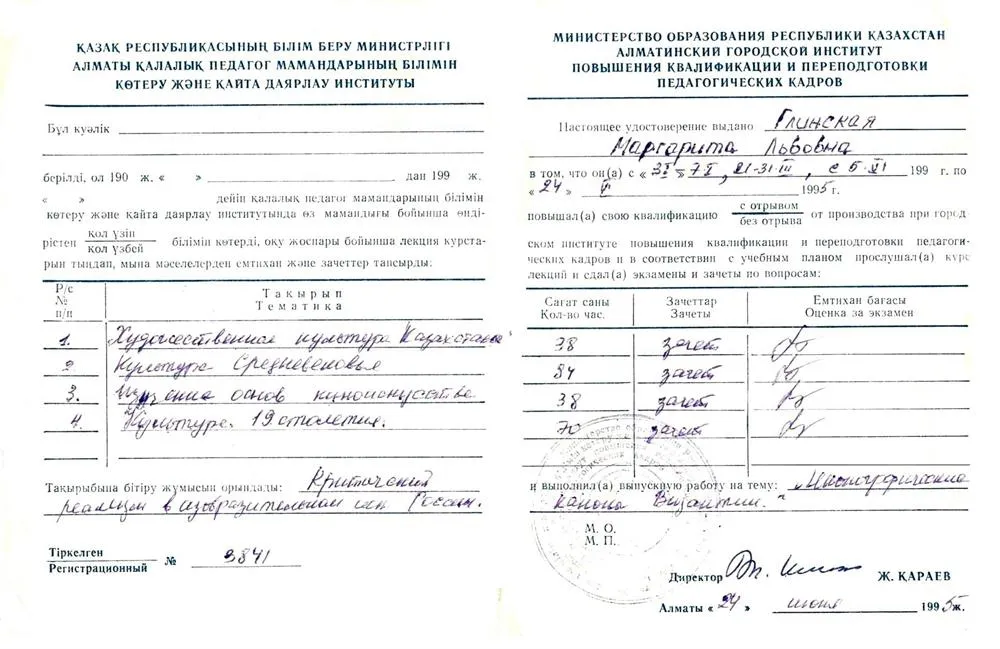 ҚАЗАҚ РЕСПУБЛИКАСЫНЫҢ БІЛІМ БЕРУ МИНИСТРЛІГІ
АЛМАТЫ ҚАЛАЛЫҚ ПЕДАГОГ МАМАНДАРЫНЫҢ БІЛІМІН
КӨТЕРУ ЖӘНЕ ҚАЙТА ДАЯРЛАУ ИНСТИТУТЫ
Бұл куәлік
берілді, ол 190 ж. « » дан 199 ж.
« » дейін қалалық педагог мамандарының білімін
көтеру және қайта даярлау институтында өз мамандығы бойынша өнді-
рістен қол үзіп білімін көтерді, оқу жоспары бойынша лекция курста-
қол үзбей
рын тыңдап, мына мәселелерден емтихан және зачеттер тапсырды:
Р/с № п/п
Тақырып
Тематика
1. Художественная культура Казахстана
2 Культура Средневековья
3. Изучение основ киноискусства
4. Культура 19 столетия.
Тақырыбына бітіру жұмысын орындады: Критический
реализм в изобразительном иск России.
Тіркелген
Регистрационный № 3841
МИНИСТЕРСТВО ОБРАЗОВАНИЯ РЕСПУБЛИКИ КАЗАХСТАН
АЛМАТИНСКИЙ ГОРОДСКОЙ ИНСТИТУТ
ПОВЫШЕНИЯ КВАЛИФИКАЦИИ И ПЕРЕПОДГОТОВКИ
ПЕДАГОГИЧЕСКИХ КАДРОВ
Настоящее удостоверение выдано Глинская
Маргарита Львовна
в том, что он(а) с « » 7 I, 21-31 III, с 5 VI 199 г. по
«24» 1995 г.
повышал(а) свою квалификацию с отрывом от производства при город-
без отрыва
ском институте повышения квалификации и переподготовки педагоги-
ческих кадров и в соответствии с учебным планом прослушал(а) курс
лекций и сдал(а) экзамены и зачеты по вопросам:
Сағат саны
Кол-во час.
Зачеттар
Зачеты
Емтихан бағасы
Оценка за экзамен
38 зачет
84 зачет
38 зачет
70 зачет
и выполнил(а) выпускную работу на тему: „Иконографические
канона Византии."
М. О.
М. П.
Директор Ж. ҚАРАЕВ
Алматы «24» июня 1995 ж.